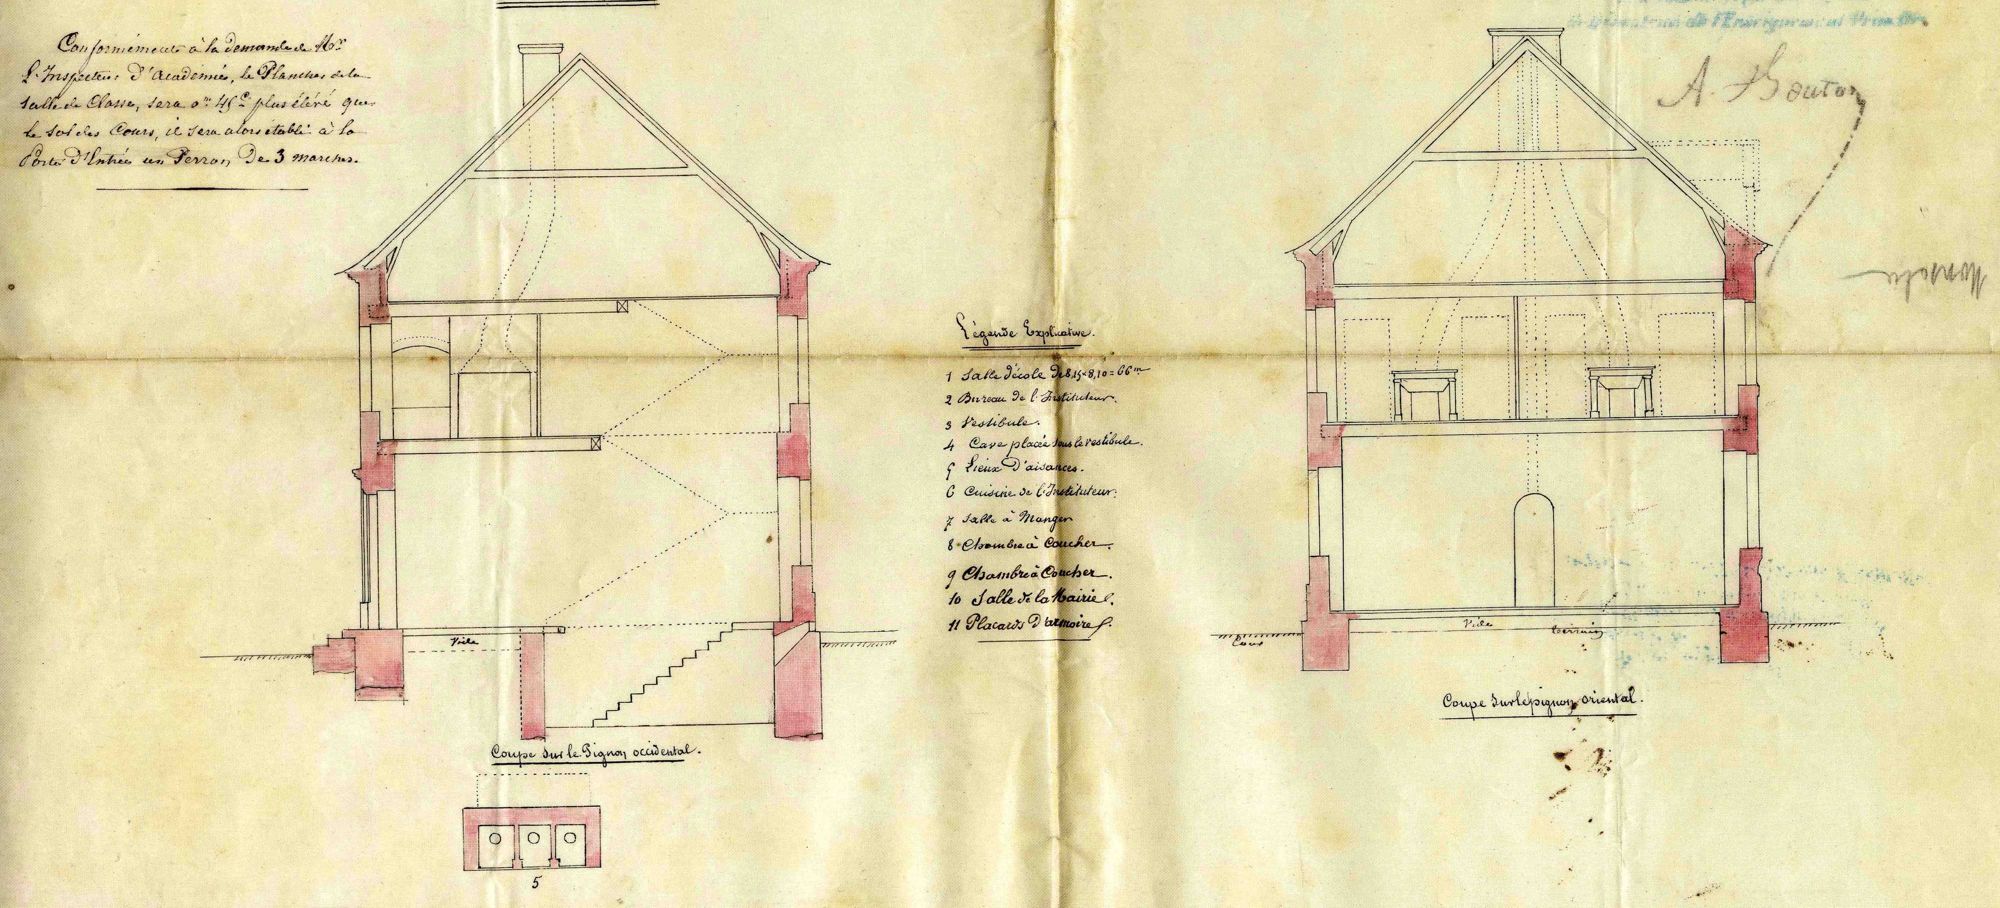 Conformément à la demande de Mr
L'Inspecteur d'Académie, le Plancher de la
Salle de Classe, sera 0m 45c plus élevé que
le sol des Cours, il sera alors établi à la
Porte d'Entrée un Perron de 3 marches.
de l'Enseignement Primaire
A. Bouton
Légende Explicative.
1 Salle d'école de 8,15 x 8,10 = 66m
2 Bureau de l'Instituteur.
3 Vestibule.
4 Cave placée sous le vestibule.
5 Lieux d'aisances.
6 Cuisine de l'Instituteur.
7 Salle à Manger
8 Chambre à Coucher.
9 Chambre à Coucher.
10 Salle de la Mairie.
11 Placards d'armoire.
Vide
Coupe sur le Pignon occidental.
5
Cour
Vide
terrain
Coupe sur le pignon oriental.